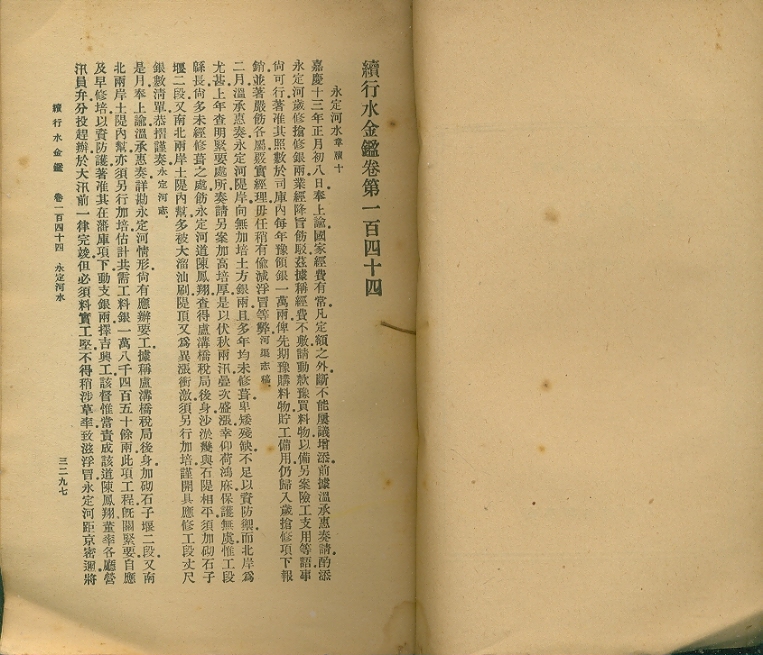 續行水金鑑卷第一百四十四
永定河水章牘十
嘉慶十三年正月初八日奉上諭國家經費有常凡定額之外斷不能屢議增添前據溫承惠奏請酌添
永定河歲修搶修銀兩業經降旨飭駁茲據稱經費不敷請動款豫買料物以備另案險工支用等語事
尙可行著准其照數於司庫內每年豫領銀一萬兩俾先期豫購料物貯工備用仍歸入歲搶修項下報
銷並著嚴飭各屬覈實經理毋任稍有偸減浮冒等弊河渠志稿
二月溫承惠奏永定河隄岸向無加培土方銀兩且多年均未修葺卑矮殘缺不足以資防禦而北岸爲
尤甚上年查明緊要處所奏請另案加高培厚是以伏秋兩汛曡次盛漲幸仰荷鴻庥保護無虞惟工段
緜長尙多未經修葺之處飭永定河道陳鳳翔查得盧溝橋稅局後身沙淤幾與石隄相平須加砌石子
堰二段又南北兩岸土隄內幫多被大溜汕刷隄頂又爲異漲衝激須另行加培謹開具應修工段丈尺
銀數淸單恭摺謹奏永定河志
是月奉上諭溫承惠奏詳勘永定河情形尙有應辦要工據稱盧溝橋稅局後身加砌石子堰二段又南
北兩岸土隄內幫亦須另行加培估計共需工料銀一萬八千四百五十餘兩此項工程旣關緊要自應
及早修培以資防護著准其在藩庫項下動支銀兩擇吉興工該督惟當責成該道陳鳳翔董率各廳營
汛員弁分投趕辦於大汛前一律完竣但必須料實工堅不得稍涉草率致滋浮冒永定河距京密邇將
續行水金鑑 卷一百四十四 永定河水
三二九七